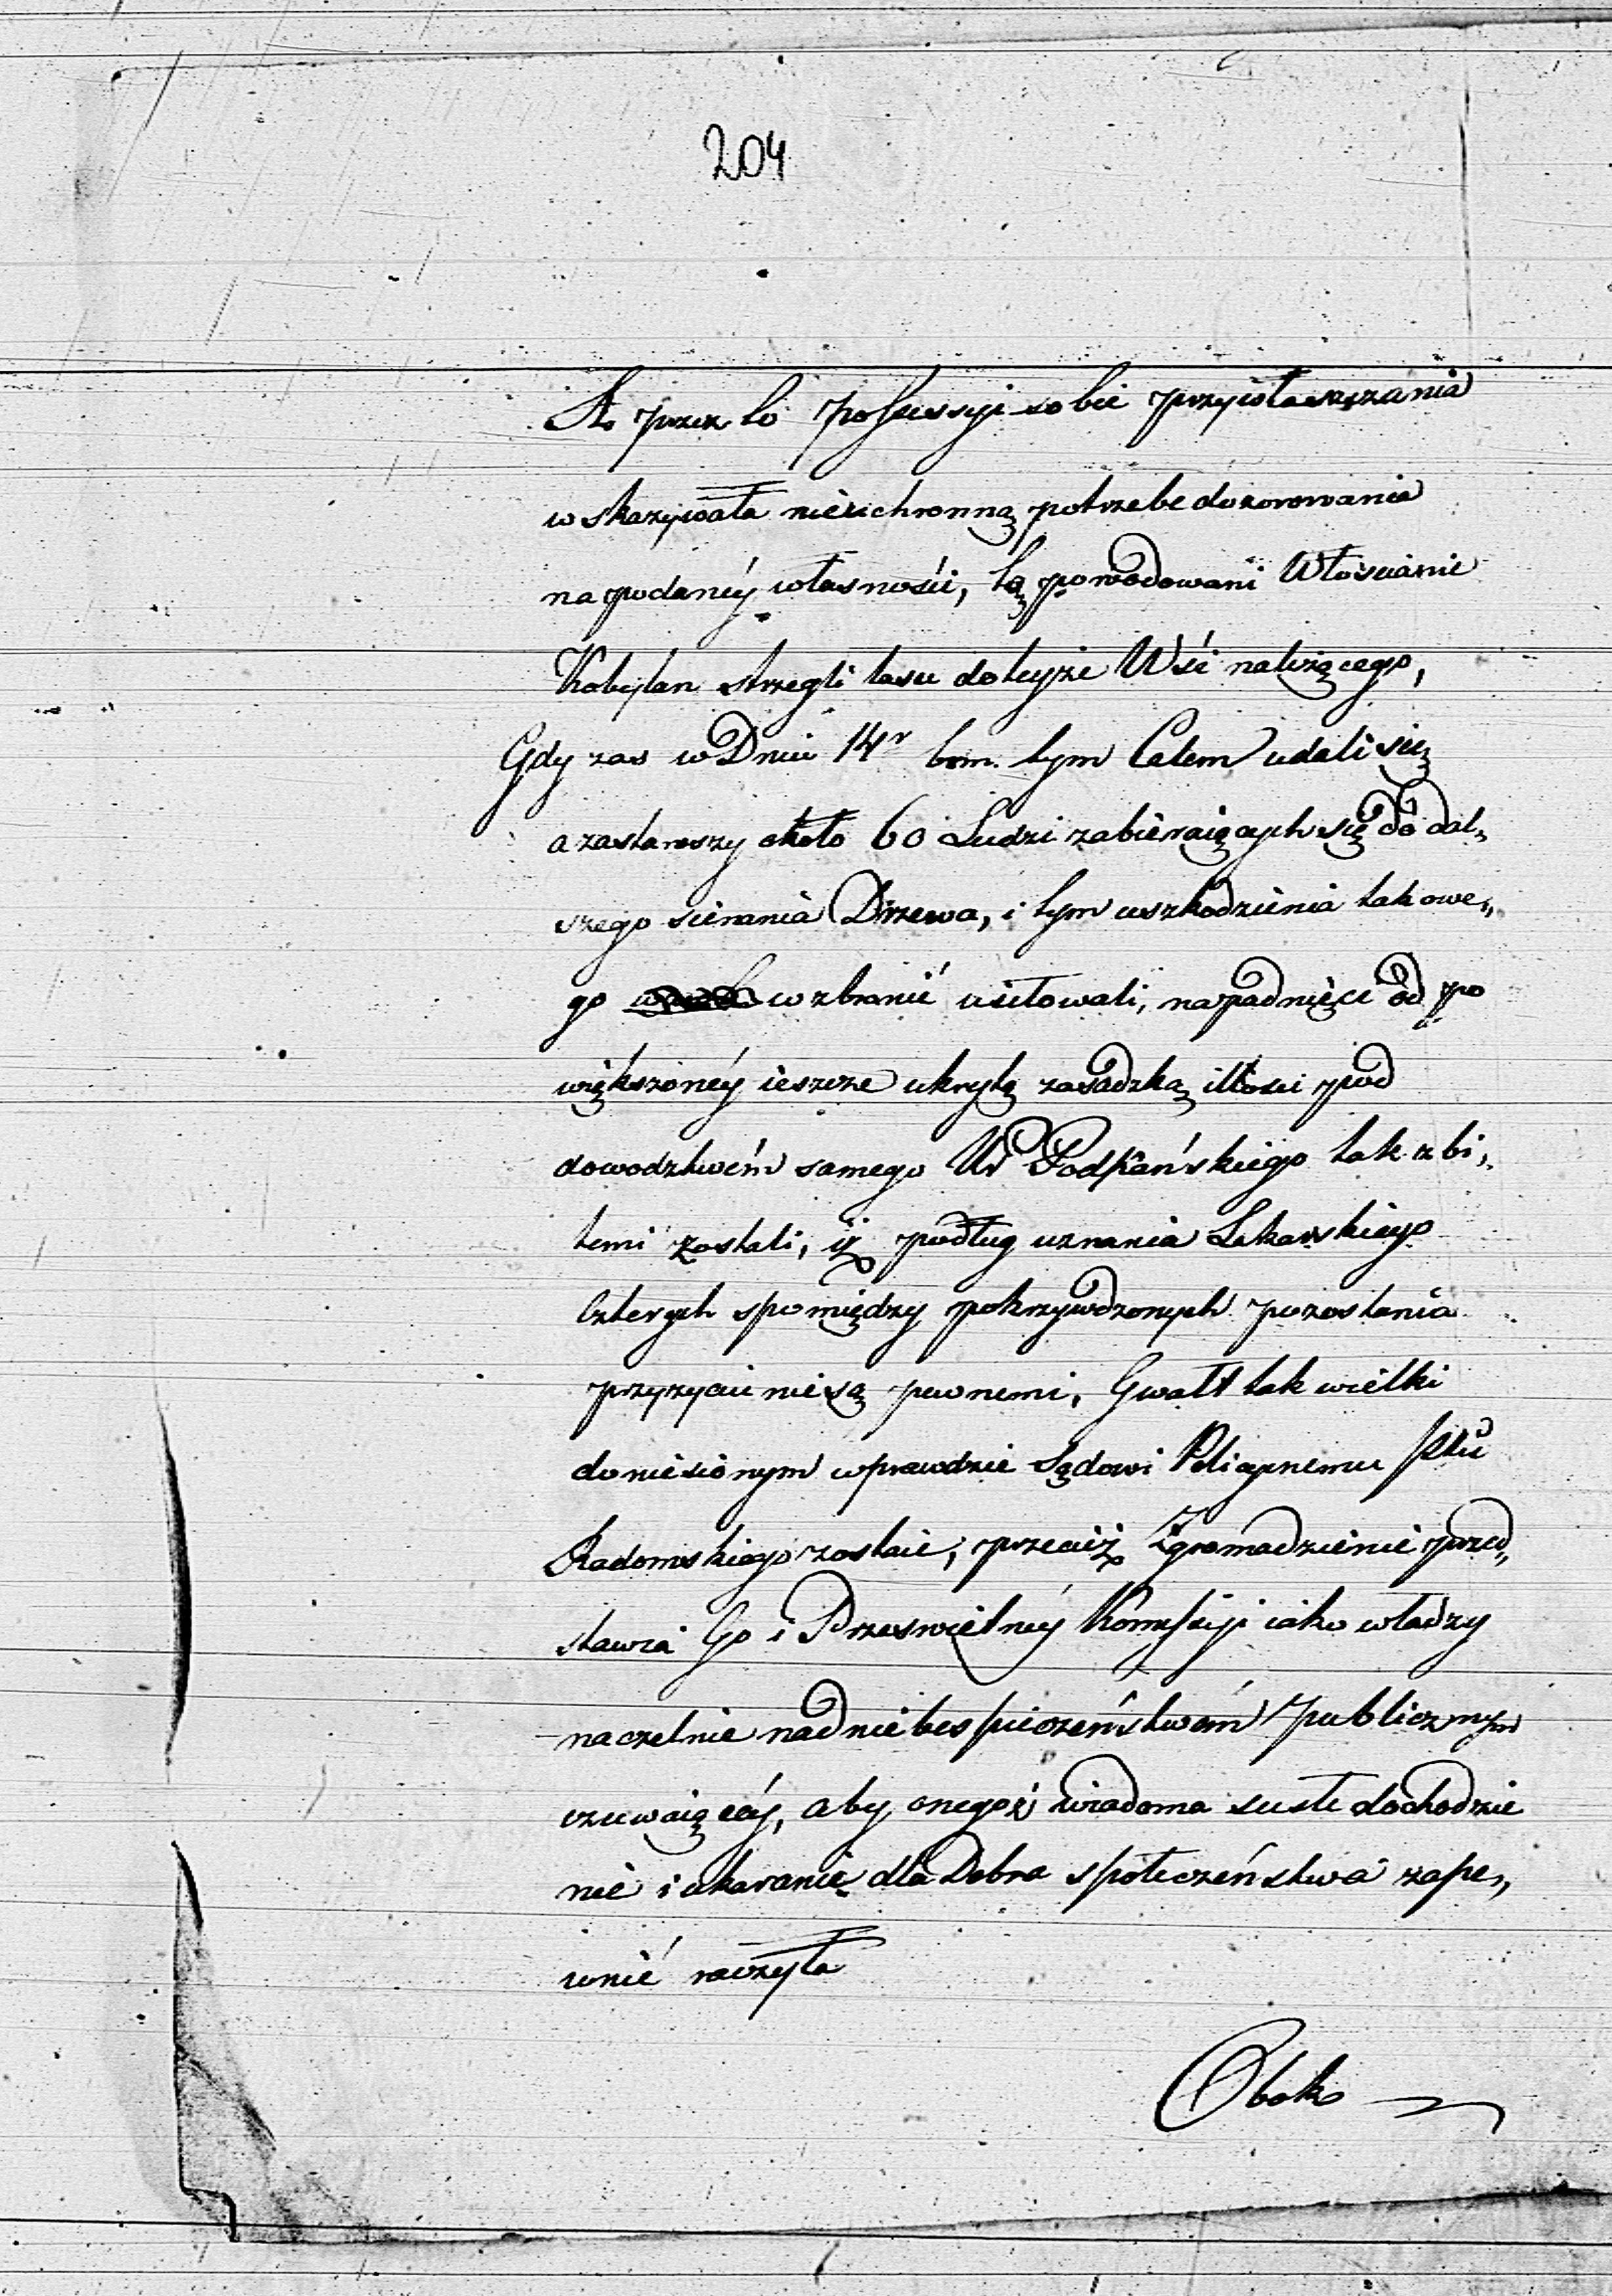 204
A. przez to possessyi sobie przywłaszczania
wskazywała nieuchronną potrzebe dozorowania
napodanéy własnośći, tą powodowani Włoscianie
Kobylan strzegli lasu do teyże Wśi należącego,
Gdy zas w Dniu 14r bm. tym Celem udali się
a zastawszy około 60 Ludzi zabieraiących się do dal„
szego scienania Drzewa, i tym uszkodzienia takowe„
go wzbranić usiłowali, napadnięci od po
większonéy ieszcze ukrytą zasadzką illości pod
dowodztwem samego Ur Podkańskiego tak zbi„
temi zostali, iż podług uznania Lekarskiego
Czterych spomiędzy pokrzywdzonych pozostania
przyzyciu niesą pewnemi, Gwałt tak wielki
doniesionym wprawdzie Sądowi Policyinemu Pttu
Radomskiego zostaie, przecież Zgromadzienie przed„
stawia Go i Prześwietnéy Kommissyi iako władzy
naczelnie nad niebespieczeństwem publicznym
czuwaiącéy, aby onegoż wiadoma scisłe dochodzie
nie i ukaranie dla Dobra społeczeństwa zape„
wnić raczyła
Obok